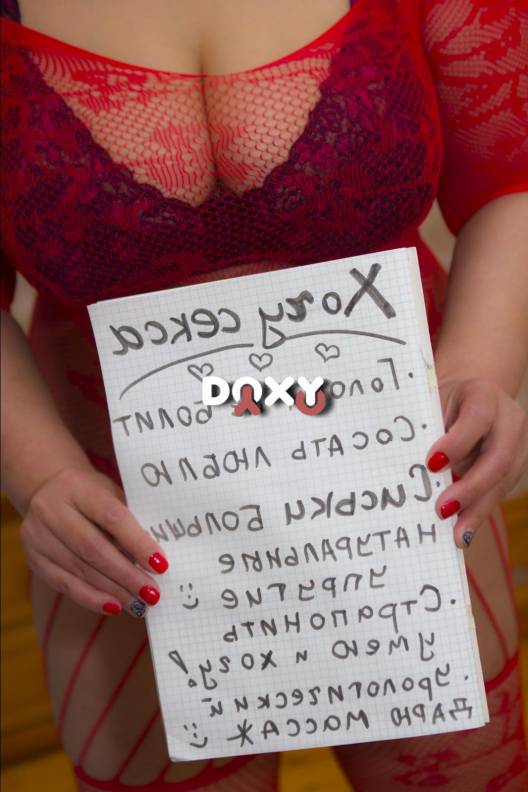 Хочу секса
DOXY
болит
· Сосать люблю
· Сиськи
натуральные
упругие :)
· Страпонить
умею и хочу!
· урологический
дарю массаж :)